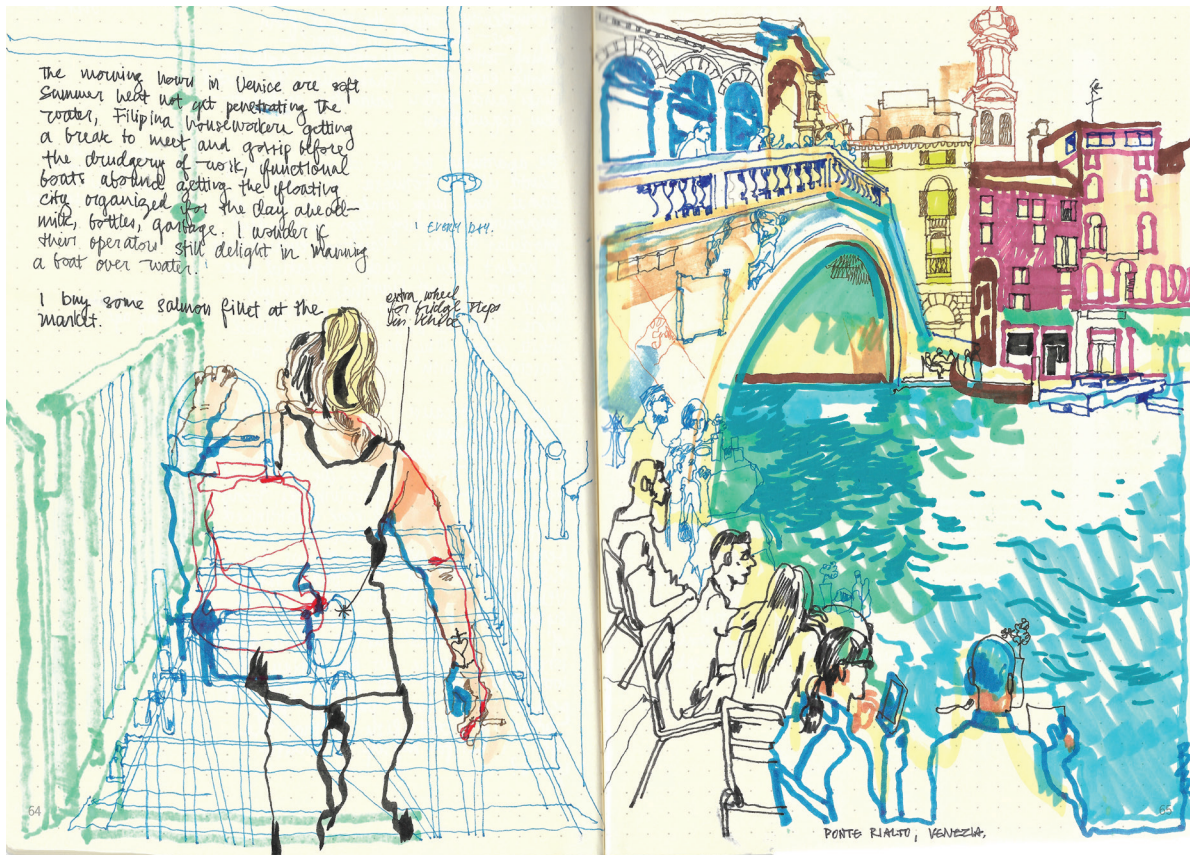 The morning hours in Venice are soft
Summer heat not yet penetrating the
water, Filipina houseworkers getting
a break to meet and gossip before
the drudgery of work, functional
boats abound getting the floating
city organized for the day ahead—
milk, bottles, garbage. I wonder if
their operators still delight in manning
a boat over water.
I buy some salmon fillet at the
market.
EVERY DAY.
extra wheel
for bridge steps
in Venice
64
65
PONTE RIALTO, VENEZIA.